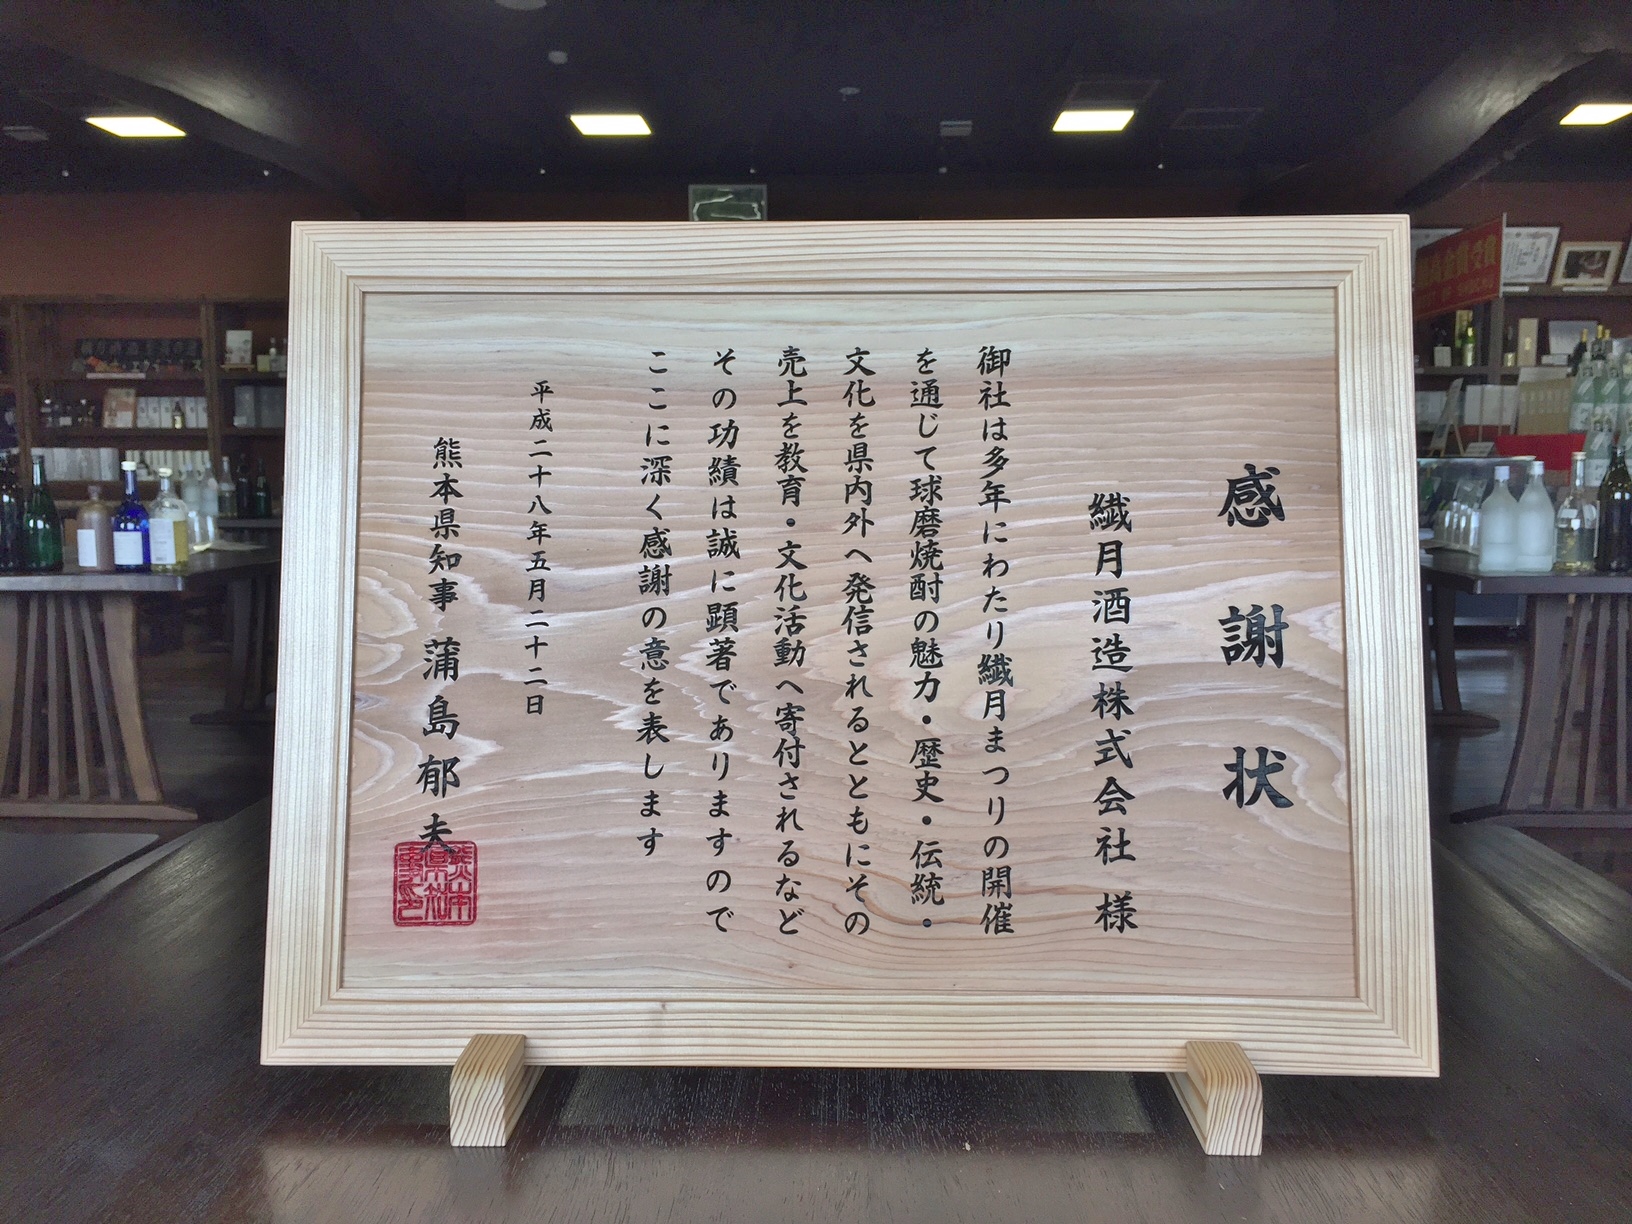 感謝状
繊月酒造株式会社 様
御社は多年にわたり繊月まつりの開催
を通じて球磨焼酎の魅力・歴史・伝統・
文化を県内外へ発信されるとともにその
売上を教育・文化活動へ寄付されるなど
その功績は誠に顕著でありますので
ここに深く感謝の意を表します
平成二十八年五月二十二日
熊本県知事 蒲島郁夫